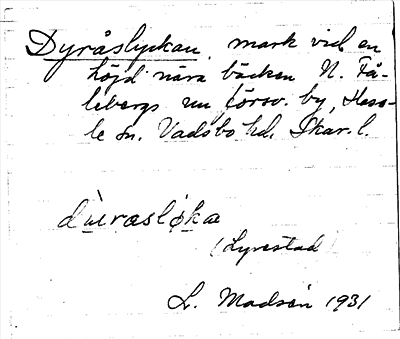 Dyråslyckan mark vid en
höjd nära bäcken N. Få-
lebergs nu försv. by, Hass-
le sn. Vadsbo hd. Skar. l.
dùeraslø̀ka
(Lyrestad)
L. Madsén 1931